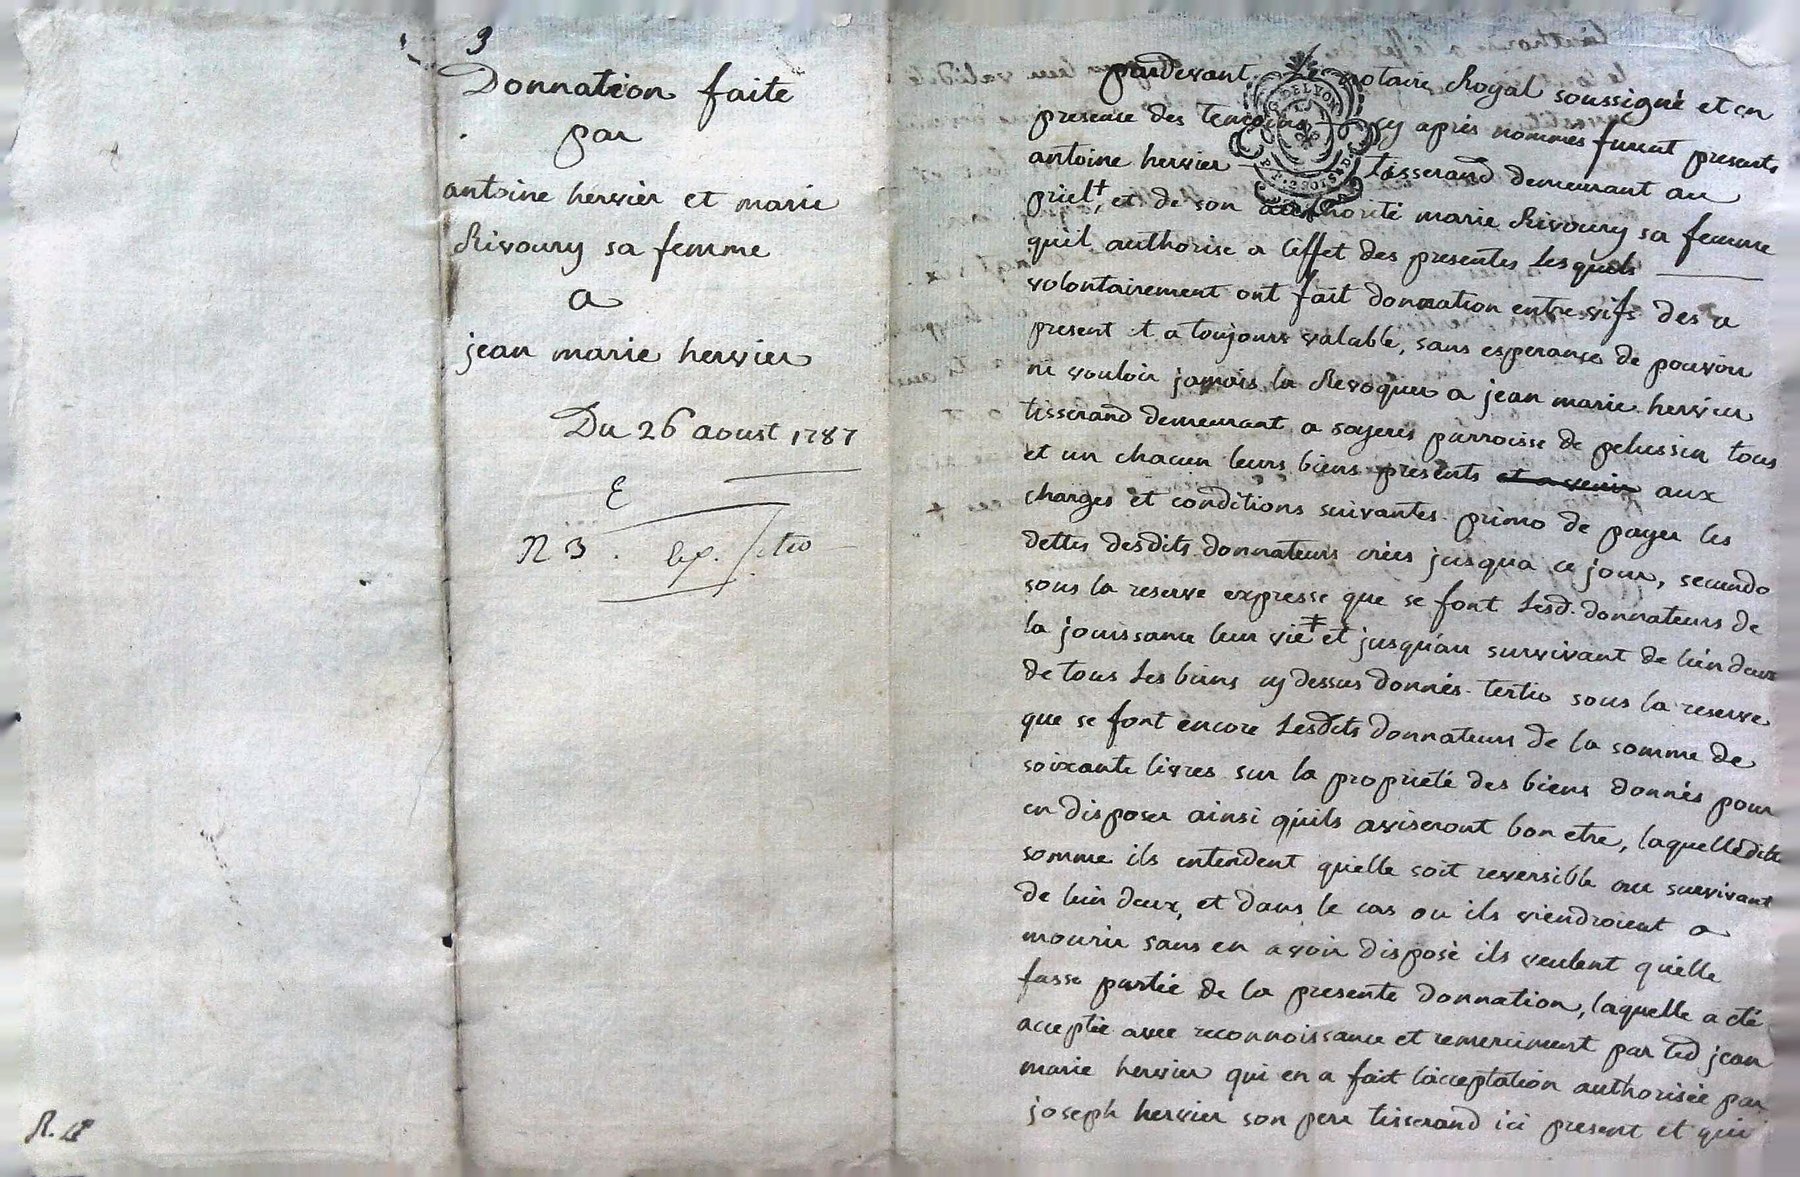 3
Donnation faite
par
antoine hervier et marie
Rivoury sa femme
a
jean marie hervier
Du 26 aoust 1787
E
N 3.
R.
pardevant Le notaire Royal soussigné et en
presence des temoins cy après nommés furent presents
antoine hervier tisserand demeurant au
priel+, et de son authorité marie Rivoury sa femme
quil authorise a l'effet des presentes Lesquels
volontairement ont fait donnation entre vifs des a
present et a toujours valable, sans esperance de pouvoir
ni vouloir jamais la Revoquer a jean marie hervier
tisserand demeurant a sayeres parroisse de pelussin tous
et un chacun leurs biens presents et a venir aux
charges et conditions suivantes. primo de payer les
dettes desdits donnateurs crées jusqua ce jour, secundo
sous la reserve expresse que se font Lesd. donnateurs de
la jouissance leur vie + et jusqu'au survivant de l'un deux
de tous Les biens cy dessus donnés. tertio sous la reserve
que se font encore Lesdits donnateurs de la somme de
soixante livres sur la propriété des biens donnés pour
en disposer ainsi quils aviseront bon etre, laquelle dite
somme ils entendent quelle soit reversible au survivant
de l'un deux, et dans le cas ou ils viendroient a
mourir sans en avoir disposé ils veulent quelle
fasse partie de la presente donnation, laquelle a été
acceptée avec reconnoissance et remerciment par led jean
marie hervier qui en a fait l'acceptation authorisée par
joseph hervier son pere tisserand ici present et qui
G. DE LYON